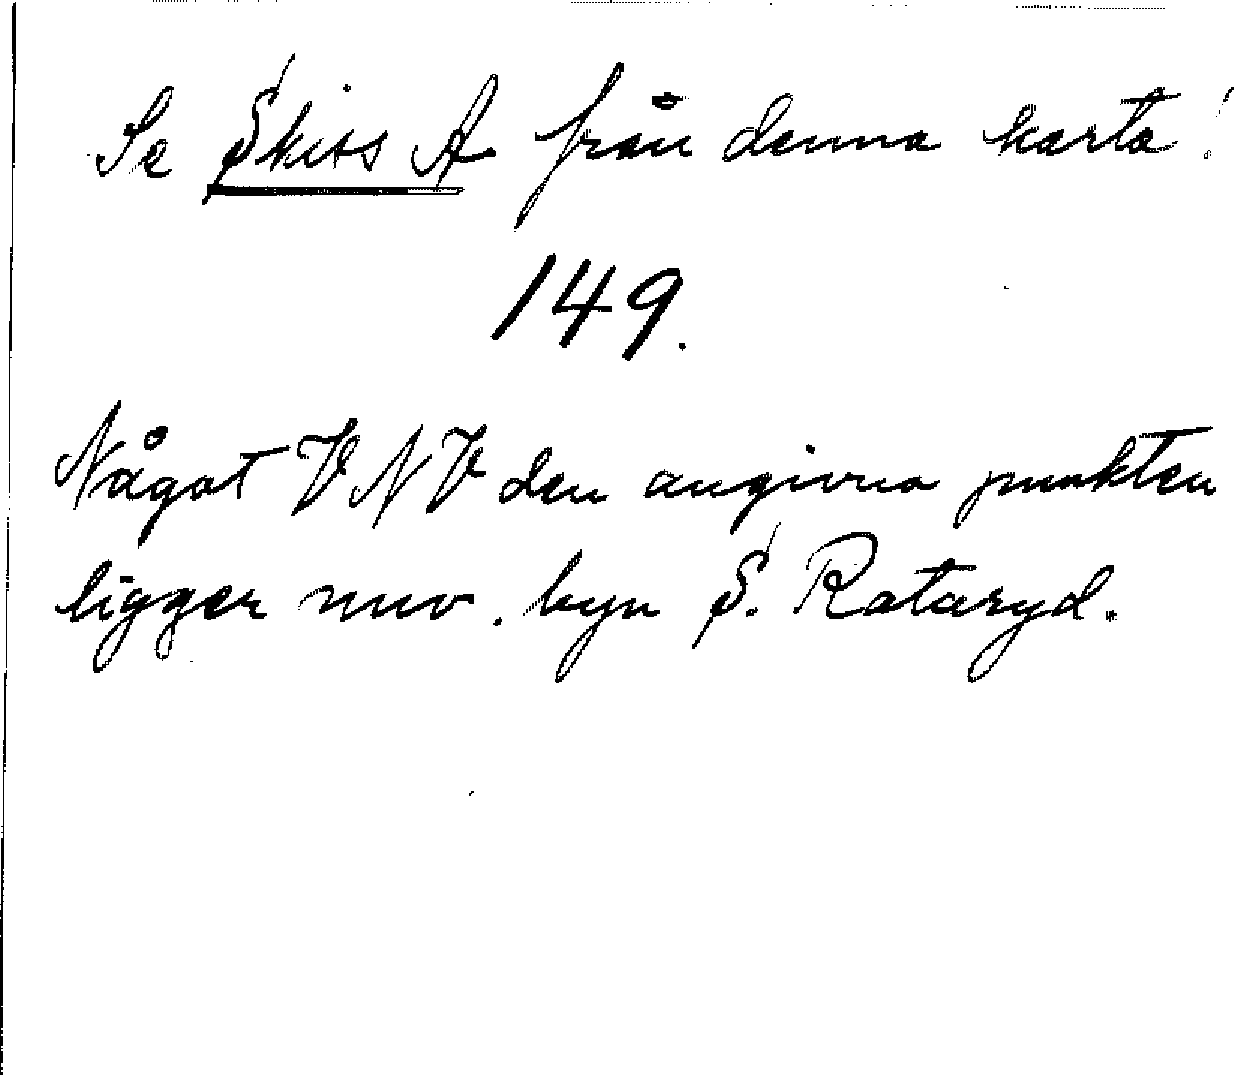 Se Skiss A från denna karta!
149.
Något V NV den angivna punkten
ligger nuv. byn S. Rataryd.